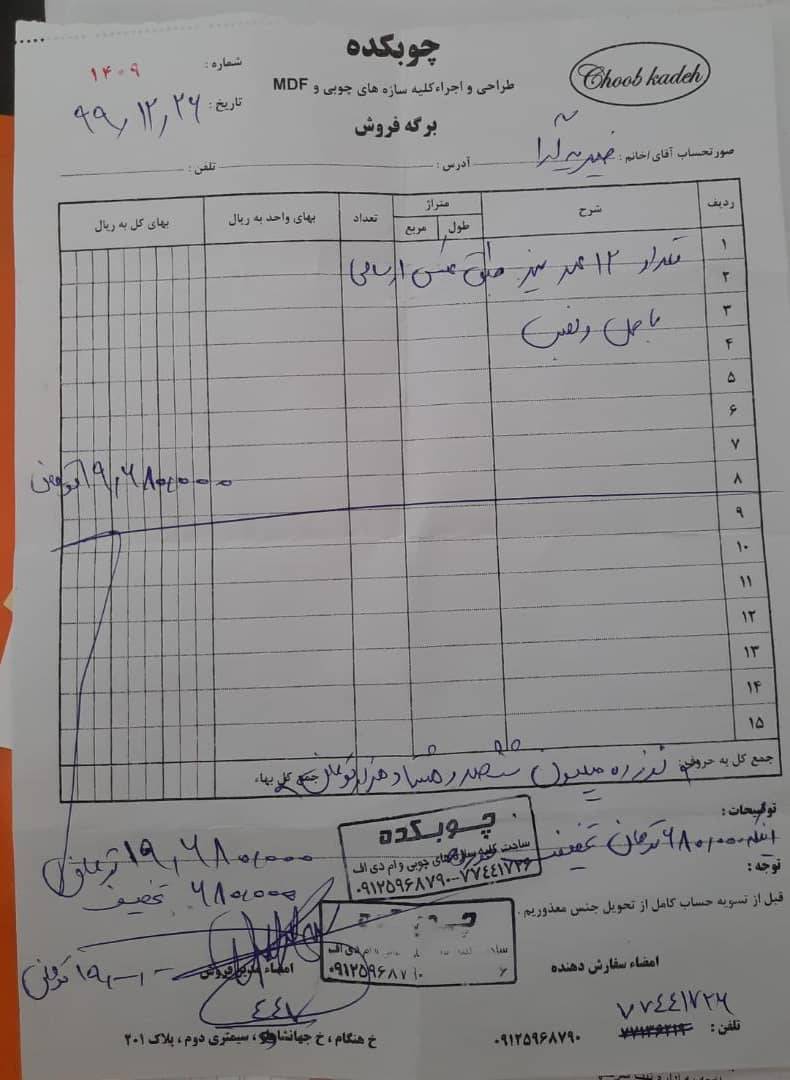 چوبکده
Choob kadeh
طراحی و اجراء کلیه سازه های چوبی و MDF
برگه فروش
شماره : ۱۴۰۹
تاریخ : ۹۹,۱۲,۲۶
صورتحساب آقای/خانم : خیریه آدا
آدرس :
تلفن :
ردیف شرح متراژ تعداد بهای واحد به ریال بهای کل به ریال
طول مربع
۱
تعداد ۱۲ عدد میز طبق عکس ارسالی
۲
۳
با حمل و نصب
۴
۵
۶
۷
۸ ۱۹,۶۸۰,۰۰۰ تومان
۹
۱۰
۱۱
۱۲
۱۳
۱۴
۱۵
جمع کل به حروف: نوزده میلیون ششصد و هشتاد هزار تومان جمع کل بهاء
توضیحات :
۶۸۰,۰۰۰ تومان تخفیف
توجه :
قبل از تسویه حساب کامل از تحویل جنس معذوریم .
چوبکده
ساخت کلیه سازه های چوبی و ام دی اف
۰۹۱۲۵۹۶۸۷۹۰-۷۷۴۴۱۷۲۶
۱۹,۶۸۰,۰۰۰ تومان
۶۸۰,۰۰۰ تخفیف
ام دی اف
امضاء سفارش دهنده
امضاء مدیر فروش
۴۴۷
۷۷۴۴۱۷۲۶
تلفن : ۷۷۱۳۶۲۱۹ ۰۹۱۲۵۹۶۸۷۹۰
خ هنگام ، خ جهانشاهلو ، سیمتری دوم ، پلاک ۲۰۱